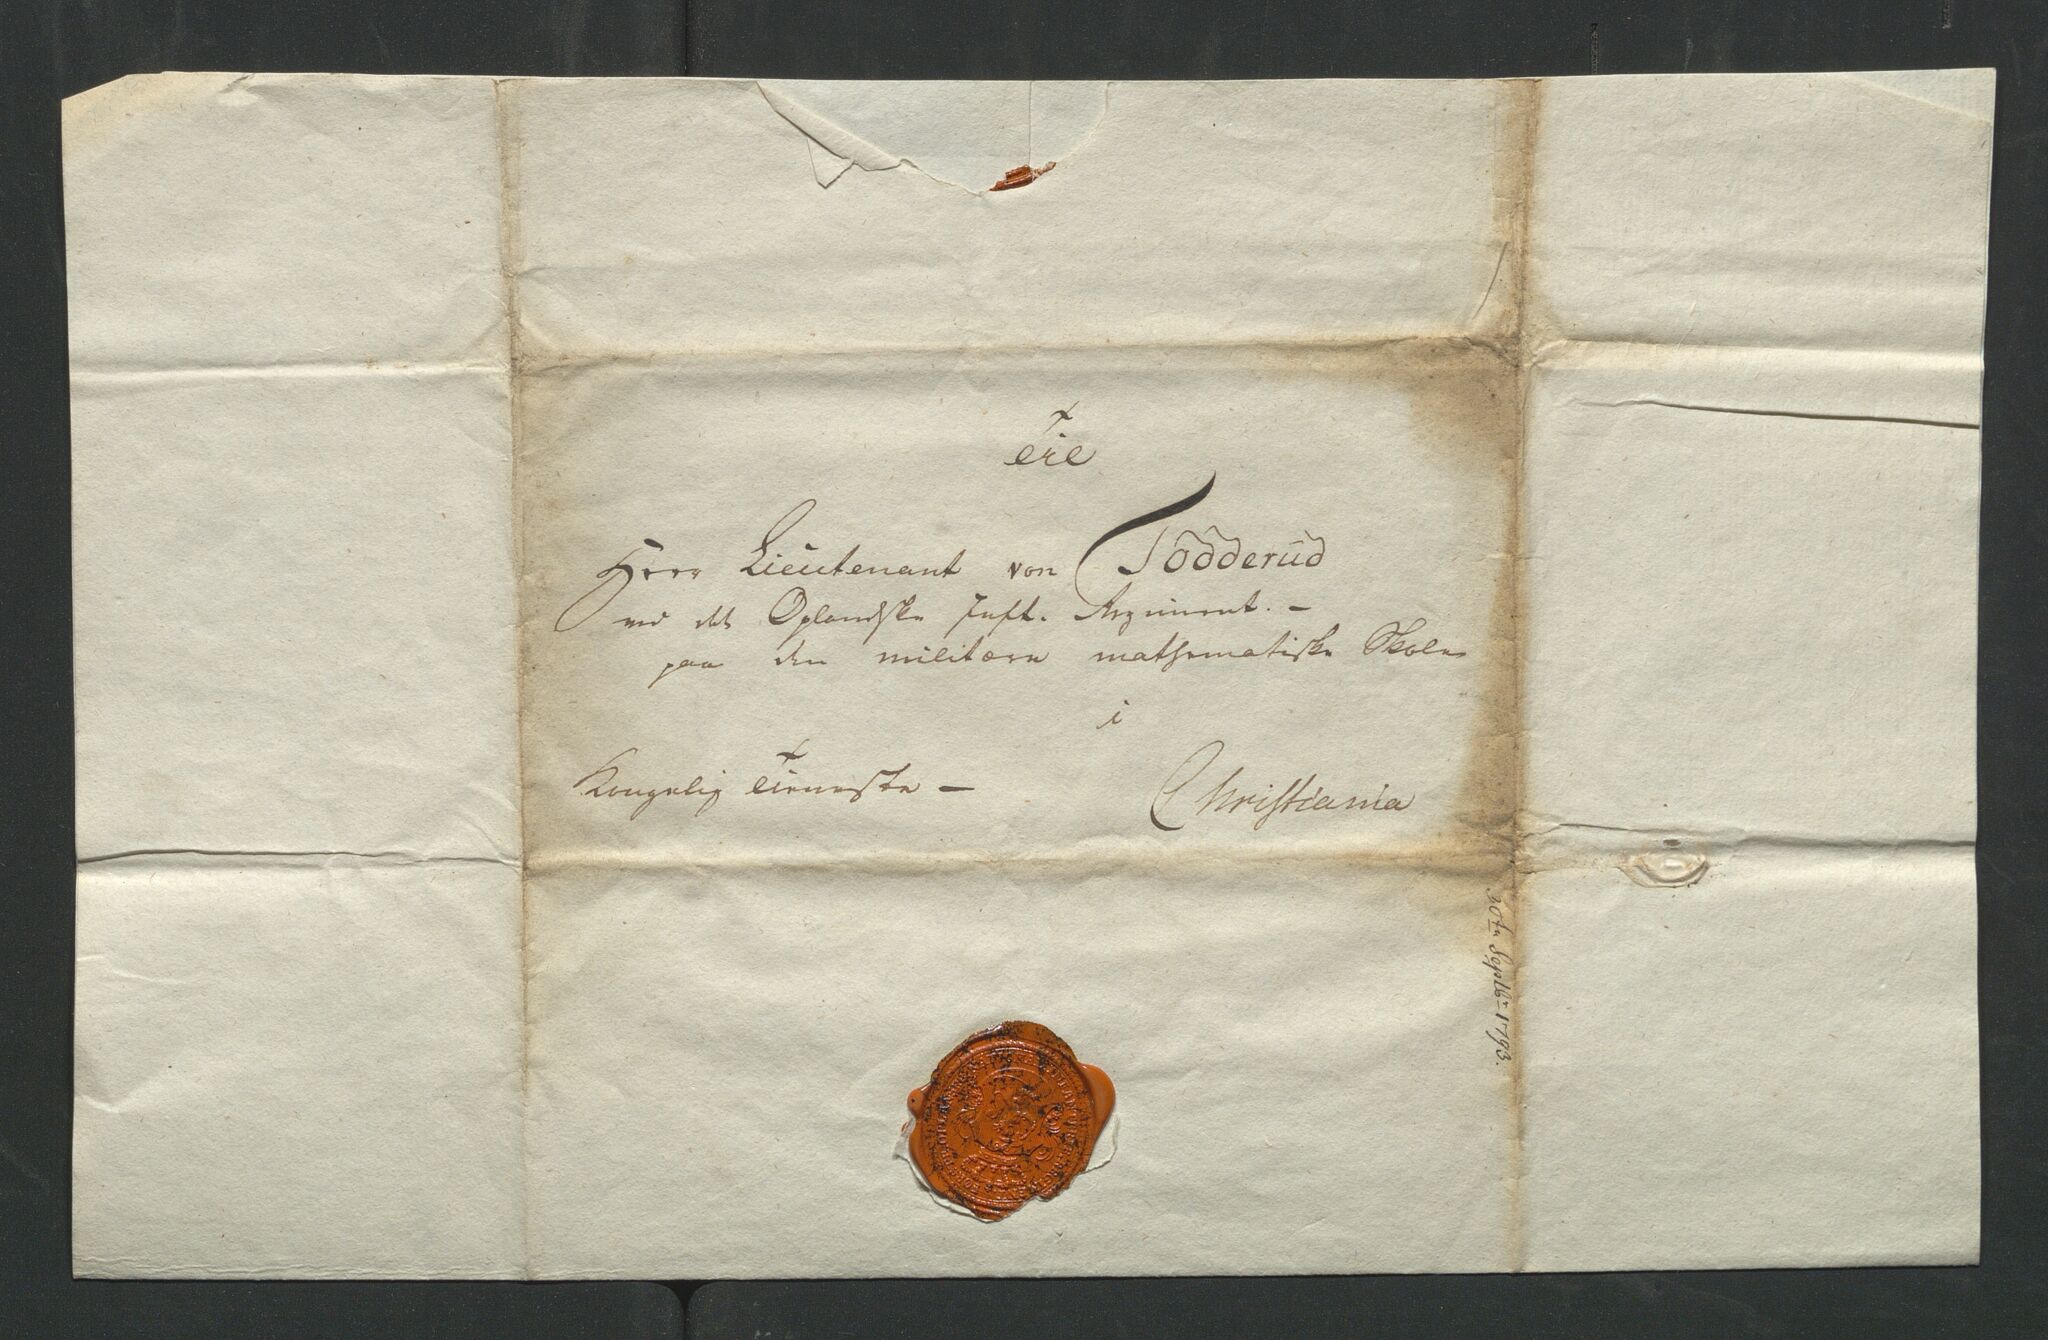 Til
Herr Lieutenant von Tödderud
ved det Oplandske Inft. Regiment. –
paa den militære mathematiske Skole
i
Kongelig Tieneste – Christiania
30te Septbr 1793.